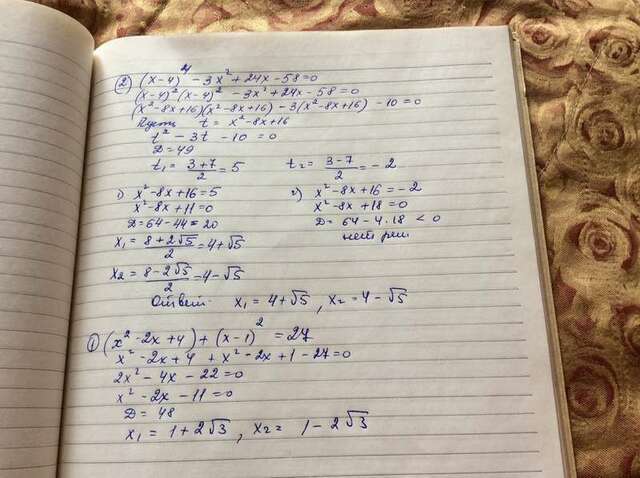 ② (x-4)⁴ - 3x² + 24x - 58 = 0
(x-4)² (x-4)² - 3x² + 24x - 58 = 0
(x²-8x+16)(x²-8x+16) - 3(x²-8x+16) - 10 = 0
Пусть t = x²-8x+16
t² - 3t - 10 = 0
D = 49
t₁ = (3+7)/2 = 5 t₂ = (3-7)/2 = -2
1) x²-8x+16 = 5 2) x²-8x+16 = -2
x²-8x+11 = 0 x²-8x+18 = 0
D = 64-44 = 20 D = 64-4·18 < 0
x₁ = (8+2√5)/2 = 4+√5 нет реш
x₂ = (8-2√5)/2 = 4-√5
Ответ: x₁ = 4+√5, x₂ = 4-√5
① (x²-2x+4) + (x-1)² = 27
x²-2x+4 + x²-2x+1-27 = 0
2x²-4x-22 = 0
x²-2x-11 = 0
D = 48
x₁ = 1+2√3, x₂ = 1-2√3